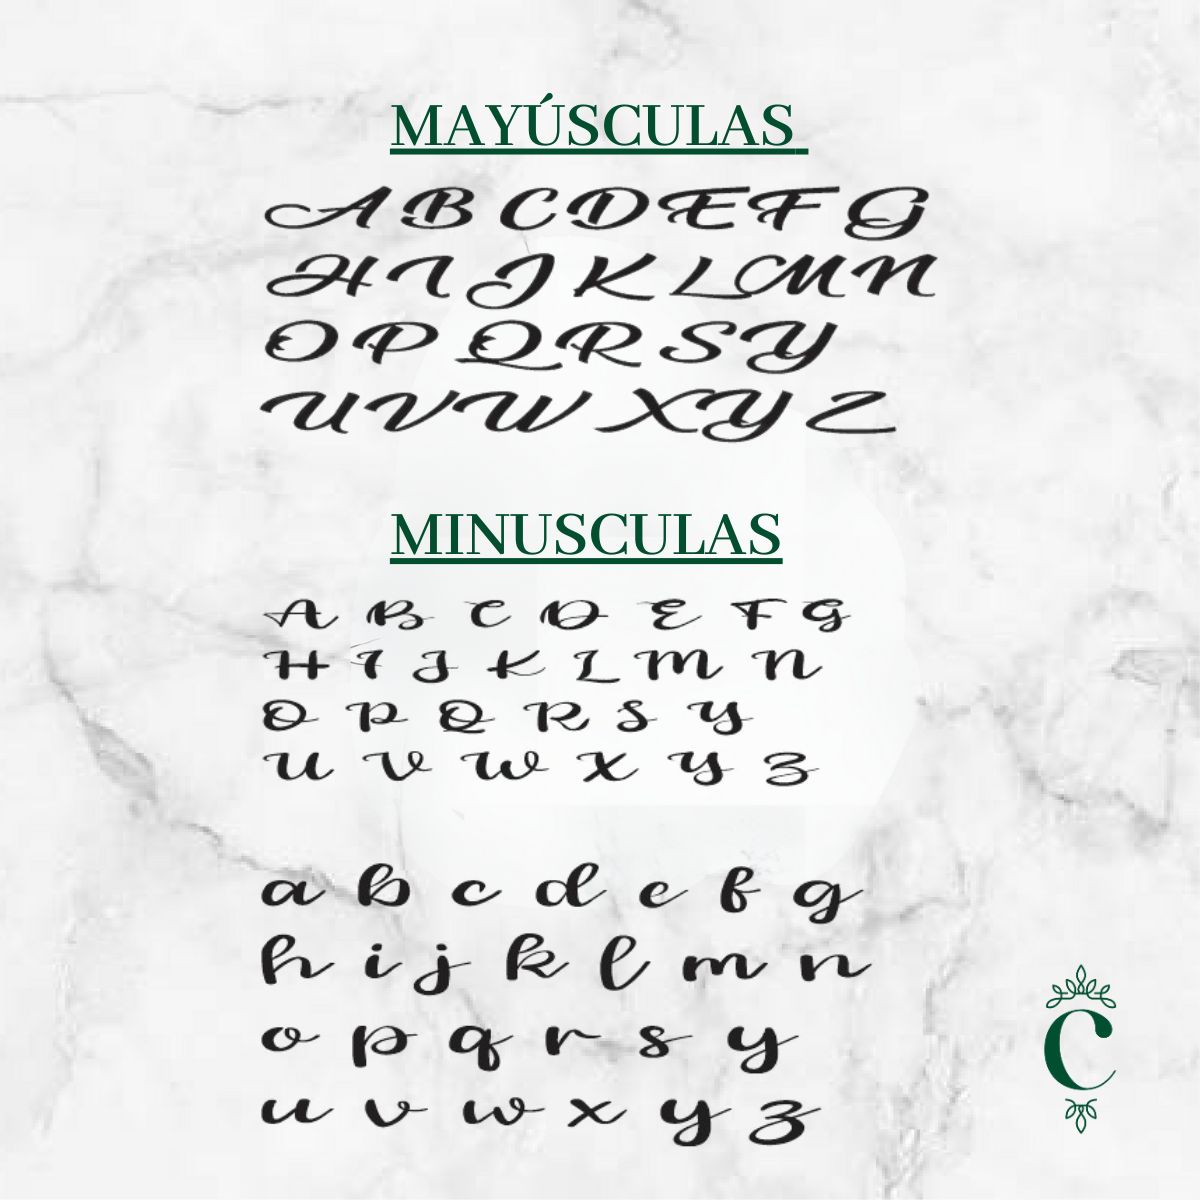 MAYÚSCULAS
A B C D E F G
H I J K L M N
O P Q R S Y
U V W X Y Z
MINUSCULAS
A B C D E F G
H I J K L M N
O P Q R S Y
U V W X Y Z
a b c d e f g
h i j k l m n
o p q r s y
u v w x y z
C